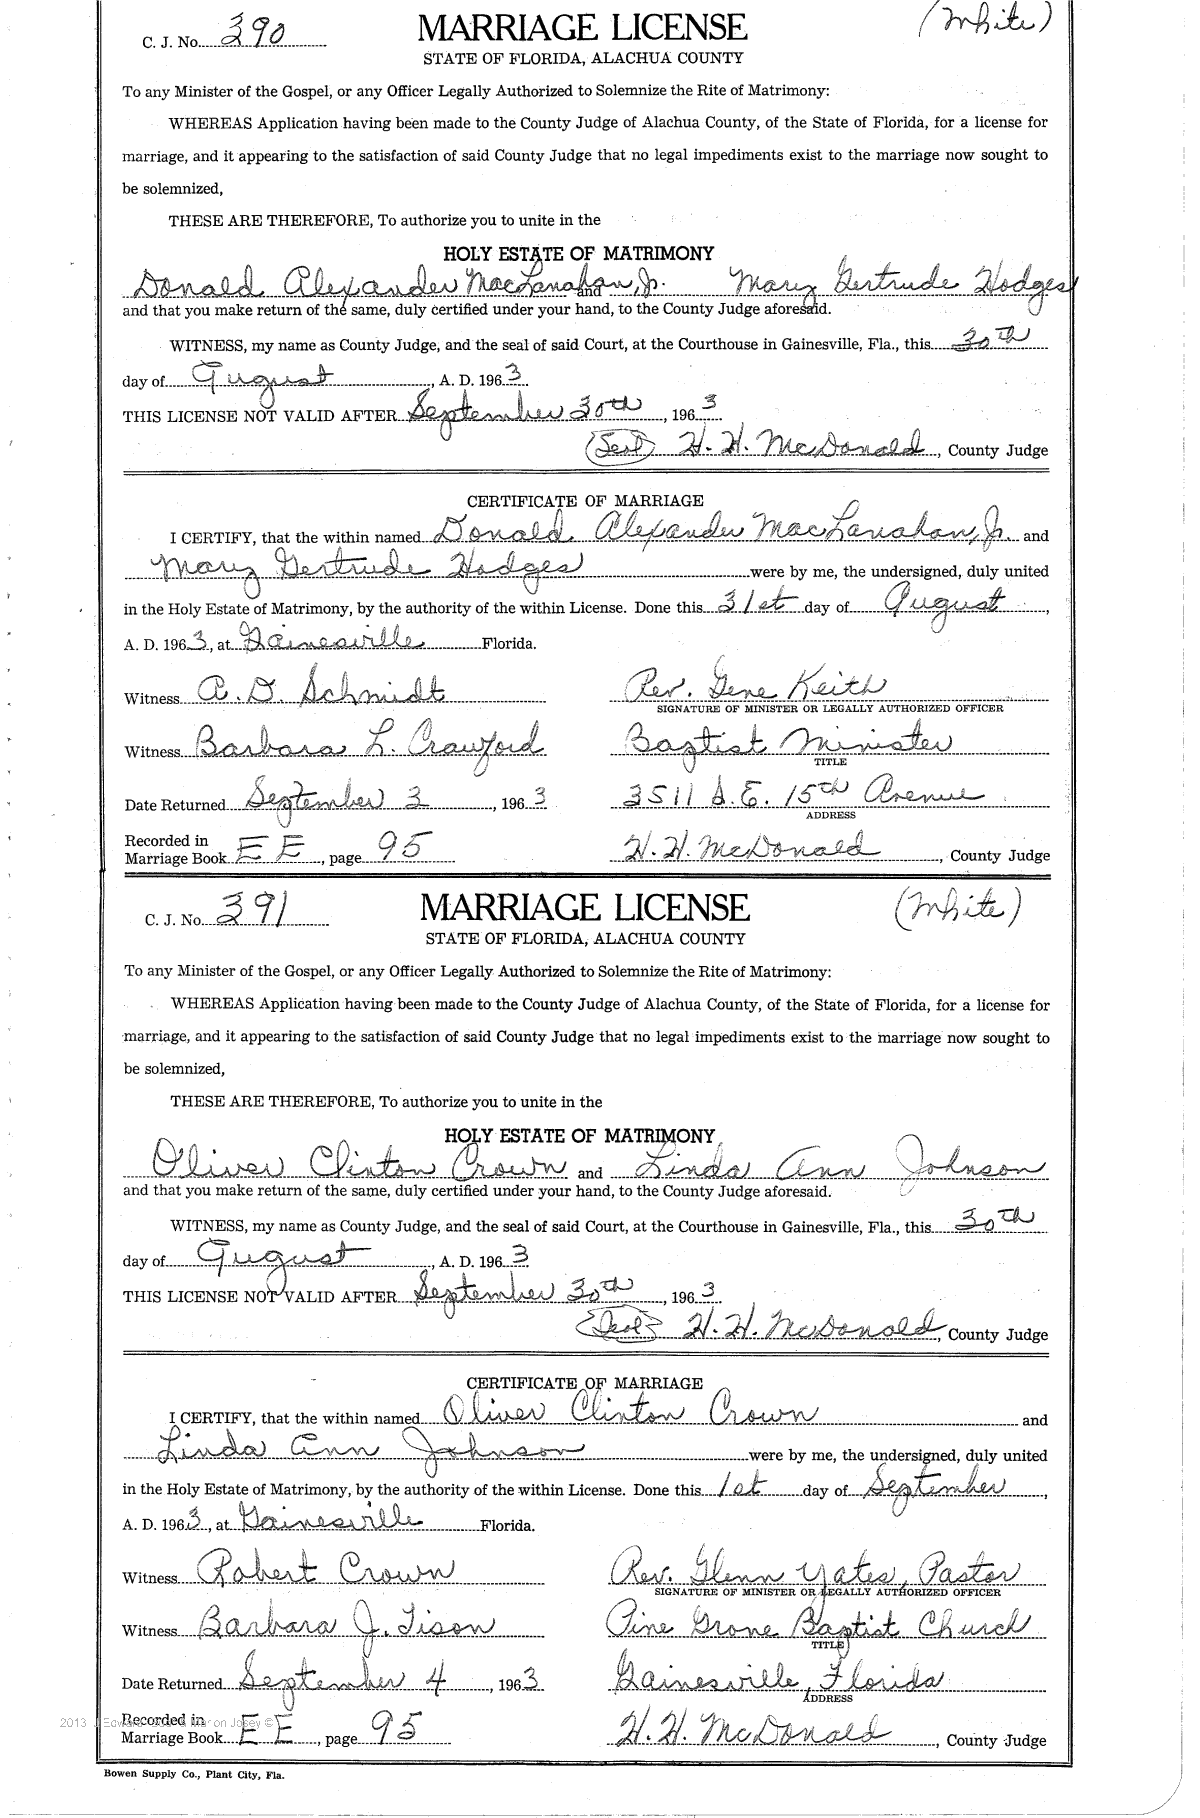 C. J. No. 390 MARRIAGE LICENSE (White)
STATE OF FLORIDA, ALACHUA COUNTY
To any Minister of the Gospel, or any Officer Legally Authorized to Solemnize the Rite of Matrimony:
WHEREAS Application having been made to the County Judge of Alachua County, of the State of Florida, for a license for
marriage, and it appearing to the satisfaction of said County Judge that no legal impediments exist to the marriage now sought to
be solemnized,
THESE ARE THEREFORE, To authorize you to unite in the
HOLY ESTATE OF MATRIMONY
Donald Alexander MacLanahan, Jr. and Mary Gertrude Hodges
and that you make return of the same, duly certified under your hand, to the County Judge aforesaid.
WITNESS, my name as County Judge, and the seal of said Court, at the Courthouse in Gainesville, Fla., this 30th
day of August, A. D. 1963
THIS LICENSE NOT VALID AFTER September 30th, 1963
(Seal) H. H. McDonald, County Judge
CERTIFICATE OF MARRIAGE
I CERTIFY, that the within named Donald Alexander MacLanahan, Jr. and
Mary Gertrude Hodges were by me, the undersigned, duly united
in the Holy Estate of Matrimony, by the authority of the within License. Done this 31st day of August,
A. D. 1963, at Gainesville Florida.
Witness A. D. Schmidt Rev. Gene Keith
SIGNATURE OF MINISTER OR LEGALLY AUTHORIZED OFFICER
Witness Barbara L. Crawford Baptist Minister
TITLE
Date Returned September 3, 1963 3511 S.E. 15th Avenue
ADDRESS
Recorded in
Marriage Book E E, page 95 H. H. McDonald, County Judge
C. J. No. 391 MARRIAGE LICENSE (White)
STATE OF FLORIDA, ALACHUA COUNTY
To any Minister of the Gospel, or any Officer Legally Authorized to Solemnize the Rite of Matrimony:
WHEREAS Application having been made to the County Judge of Alachua County, of the State of Florida, for a license for
marriage, and it appearing to the satisfaction of said County Judge that no legal impediments exist to the marriage now sought to
be solemnized,
THESE ARE THEREFORE, To authorize you to unite in the
HOLY ESTATE OF MATRIMONY
Oliver Clinton Crown and Linda Ann Johnson
and that you make return of the same, duly certified under your hand, to the County Judge aforesaid.
WITNESS, my name as County Judge, and the seal of said Court, at the Courthouse in Gainesville, Fla., this 30th
day of August, A. D. 1963
THIS LICENSE NOT VALID AFTER September 30th, 1963
(Seal) H. H. McDonald, County Judge
CERTIFICATE OF MARRIAGE
I CERTIFY, that the within named Oliver Clinton Crown and
Linda Ann Johnson were by me, the undersigned, duly united
in the Holy Estate of Matrimony, by the authority of the within License. Done this 1st day of September,
A. D. 1963, at Gainesville Florida.
Witness Robert Crown Rev. Glenn Yates, Pastor
SIGNATURE OF MINISTER OR LEGALLY AUTHORIZED OFFICER
Witness Barbara J. Tison Pine Grove Baptist Church
TITLE
Date Returned September 4, 1963 Gainesville, Florida
ADDRESS
Recorded in
2013
Marriage Book E E, page 95 H. H. McDonald, County Judge
Bowen Supply Co., Plant City, Fla.